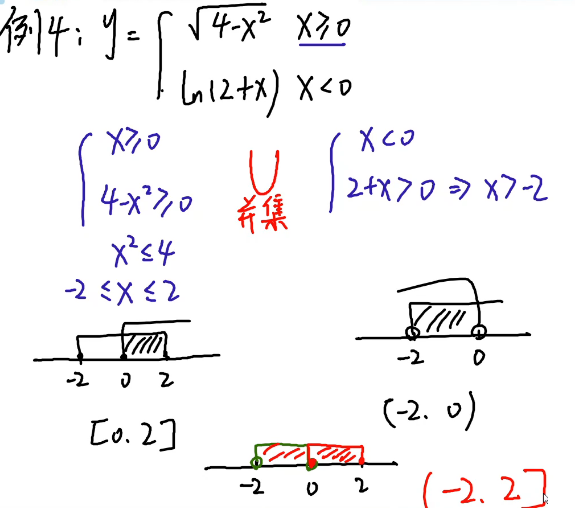 例4: y = { √4-x² x≥0
ln(2+x) x<0
{ x≥0
4-x²≥0
x²≤4
-2≤x≤2
∪
并集
{ x<0
2+x>0 ⇒ x>-2
-2 0 2
[0. 2]
-2 0
(-2. 0)
-2 0 2
(-2. 2]